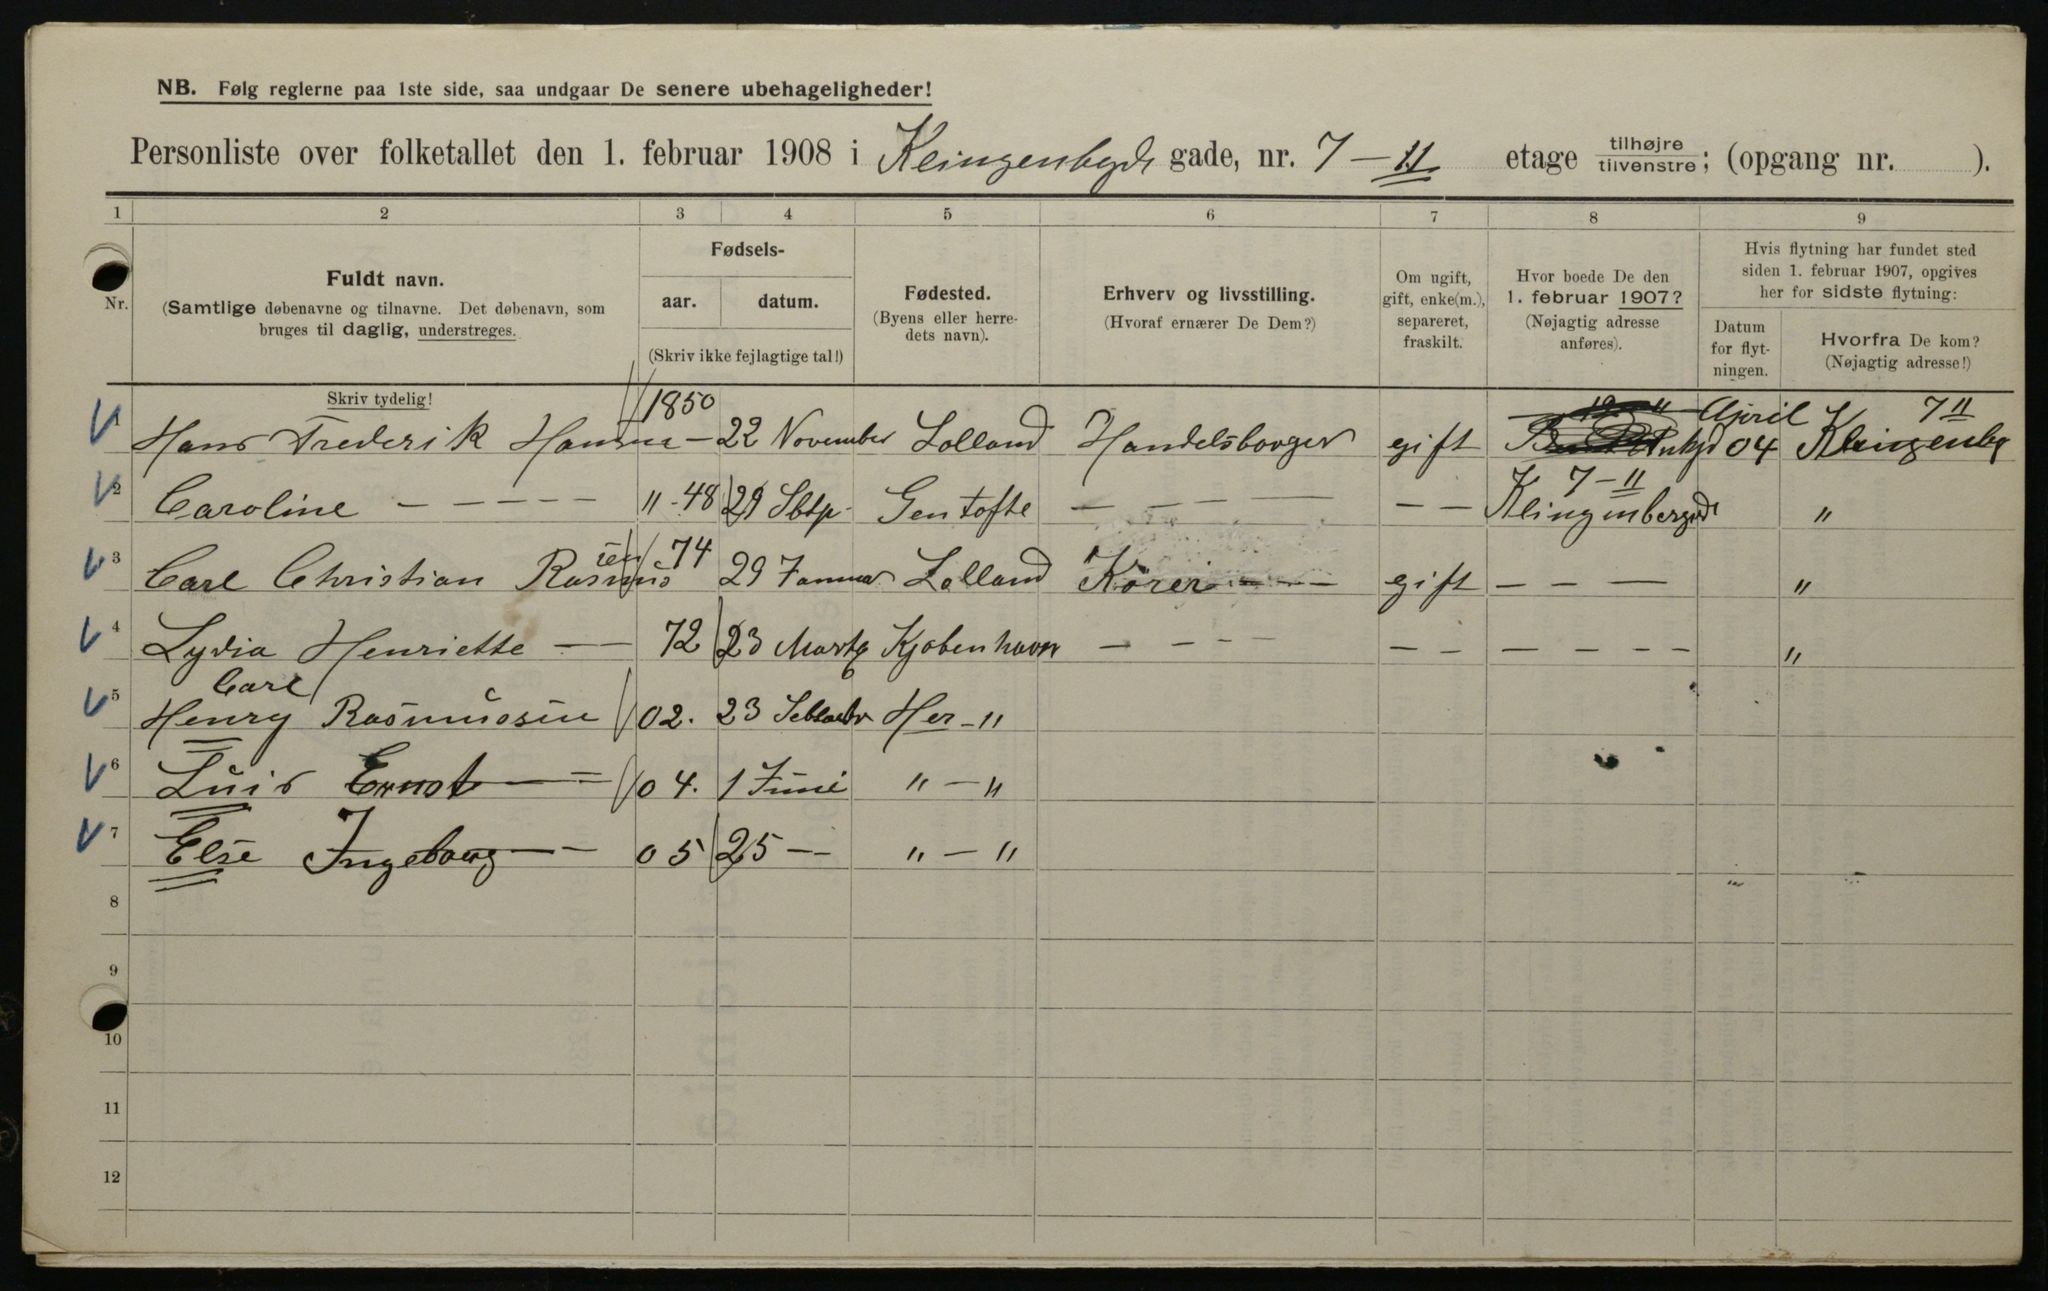 NB. Følg reglerne paa 1ste side, saa undgaar De senere ubehageligheder!
Personliste over folketallet den 1. februar 1908 i Klingenbgds gade, nr. 7 – 11 etage tilhøjre tilvenstre; (opgang nr. ).
1 2 3 4 5 6 7 8 9
Nr.
Fuldt navn.
(Samtlige døbenavne og tilnavne. Det døbenavn, som
bruges til daglig, understreges.
Skriv tydelig!
Fødsels-
aar. datum.
(Skriv ikke fejlagtige tal!)
Fødested.
(Byens eller herre-
dets navn).
Erhverv og livsstilling.
(Hvoraf ernærer De Dem?)
Om ugift,
gift, enke(m.),
separeret,
fraskilt.
Hvor boede De den
1. februar 1907?
(Nøjagtig adresse
anføres).
Hvis flytning har fundet sted
siden 1. februar 1907, opgives
her for sidste flytning:
Datum
for flyt-
ningen.
Hvorfra De kom?
(Nøjagtig adresse!)
1 Hans Frederik Hansen – 1850 22 November Lolland Handelsborger gift April 04 Klingenbg 7 11
2 Caroline – – – – – " - 48 29 Sbtp. Gentofte – – – – – – 7 – 11 Klingenbergds "
3 Carl Christian Rasmussen 74 29 Januar Lolland Kører – – – gift – – – "
4 Lydia Henriette – – 72 23 Marts Kjøbenhavn – – – – – – – – – – "
5 Carl
Henry Rasmussen 02. 23 Her – "
6 Luis Ernst – = 04. 1 Juni " – "
7 Else Ingeborg – – 05 25 – " – "
8
9
10
11
12